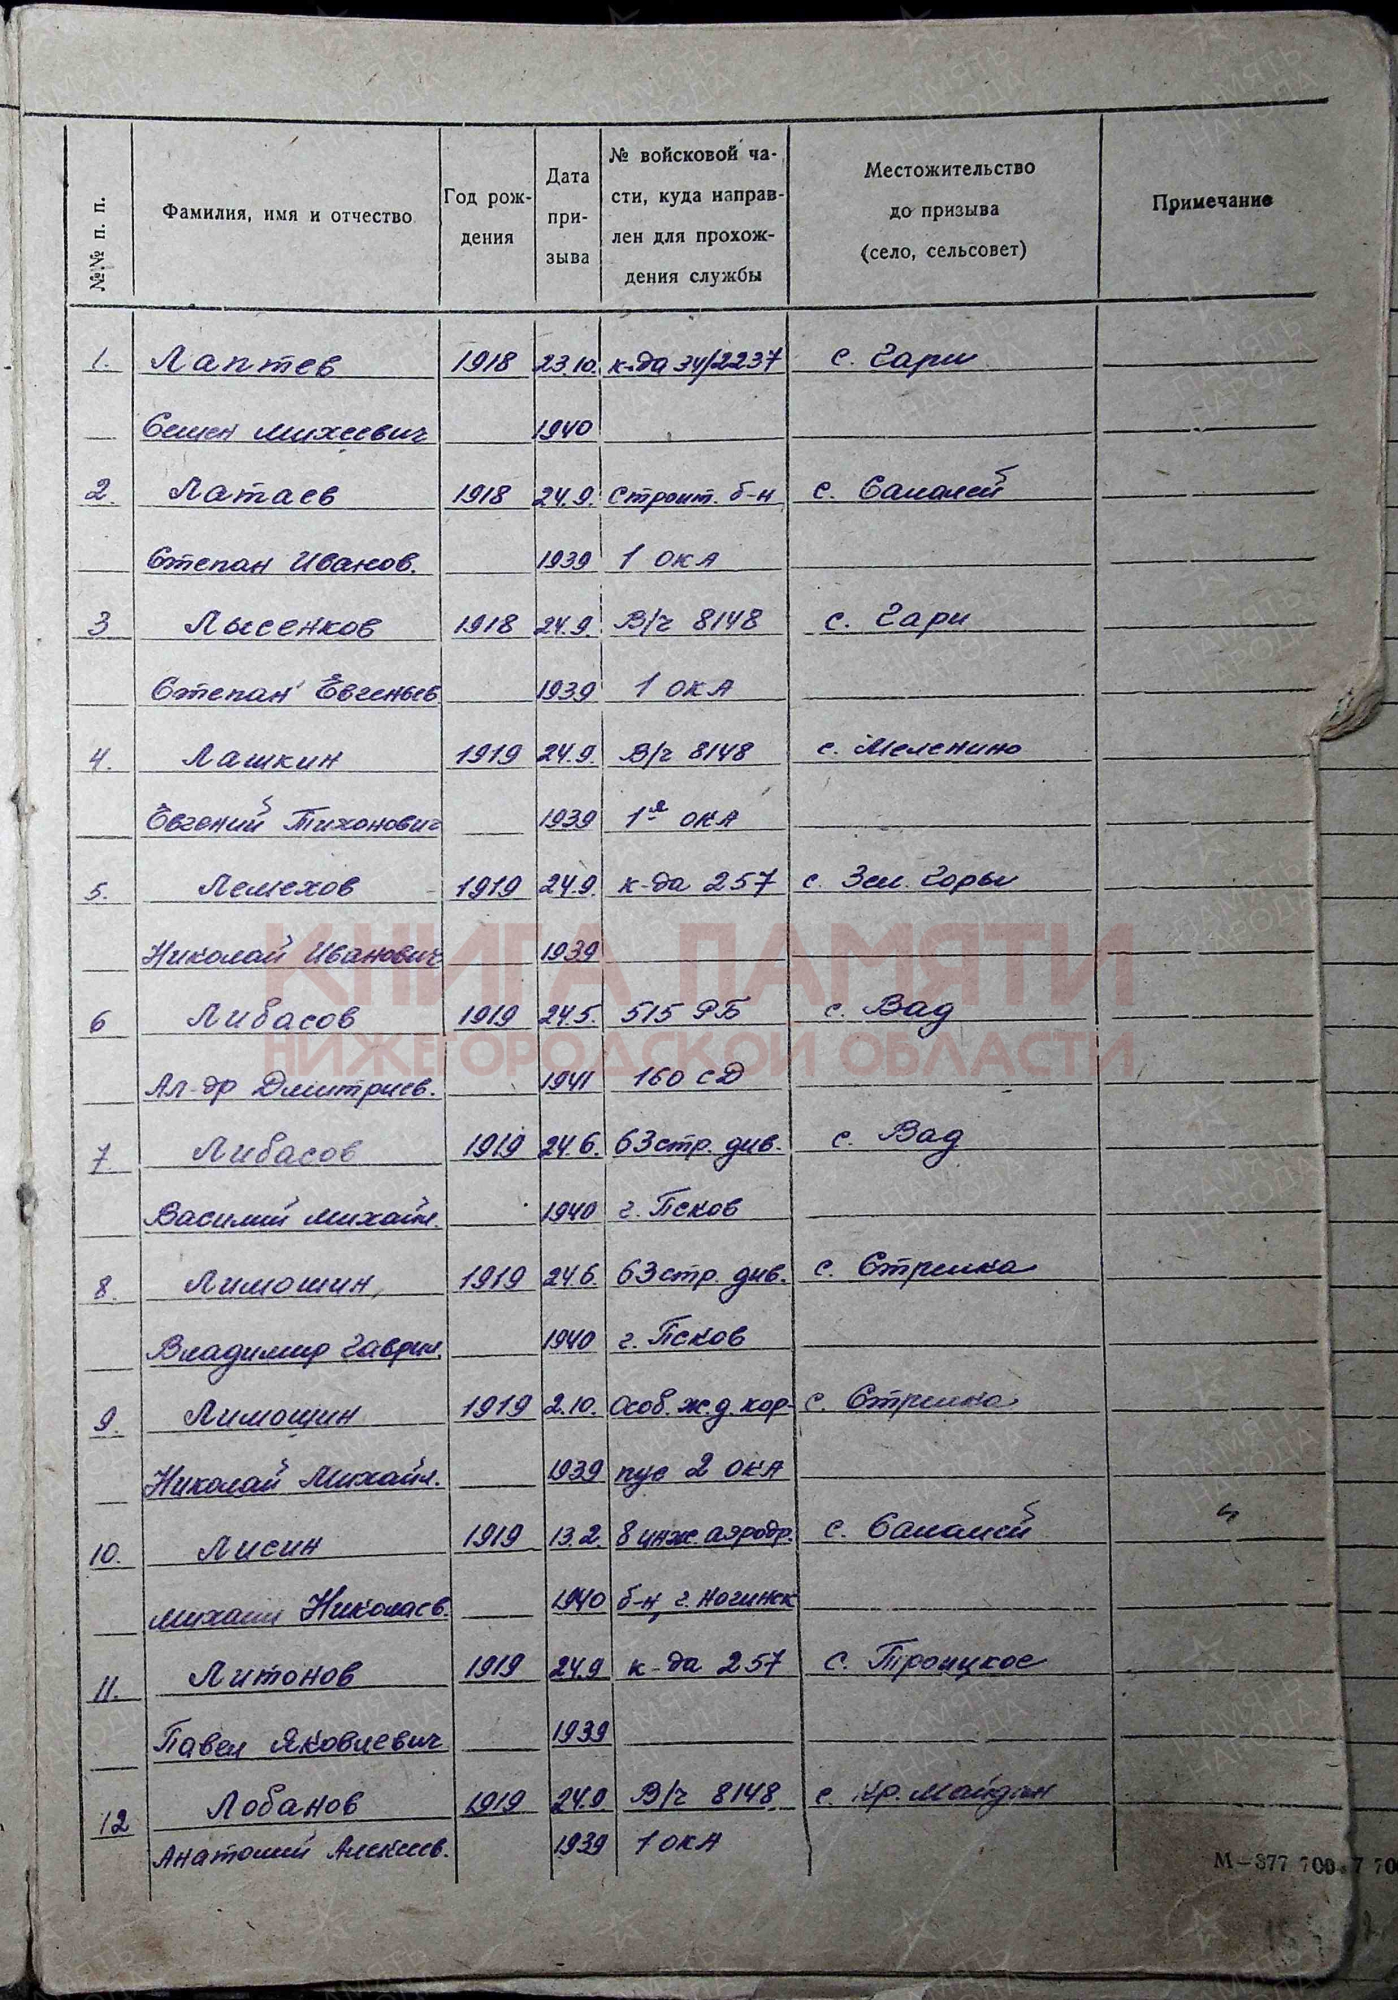 №№ п. п.
Фамилия, имя и отчество
Год рож-
дения
Дата
при-
зыва
№ войсковой ча-
сти, куда направ-
лен для прохож-
дения службы
Местожительство
до призыва
(село, сельсовет)
Примечание
1. Лаптев 1918 23.10. к-да 34/2237 с. Гари
Семен Михеевич 1940
2. Латаев 1918 24.9. Строит. б-н с. Салалей
Степан Иванов. 1939 1 ОКА
3 Лысенков 1918 24.9. В/ч 8148 с. Гари
Степан Евгеньев. 1939 1 ОКА
4. Лашкин 1919 24.9. В/ч 8148 с. Меленино
Евгений Тихонович 1939 1я ОКА
5. Лемехов 1919 24.9. к-да 257 с. Зел. Горы
Николай Иванович 1939
6 Либасов 1919 24.5. 515 РБ с. Вад
Ал-др Дмитриев. 1941 160 СД
7 Либасов 1919 24.6. 63 стр. див. с. Вад
Василий Михайл. 1940 г. Псков
8. Лимошин 1919 24.6. 63 стр. див. с. Стрелка
Владимир Гаврил. 1940 г. Псков
9. Лимошин 1919 2.10. Особ. ж.д. кор- с. Стрелка
Николай Михайл. 1939 пус 2 ОКА
10. Лисин 1919 13.2. 8 инж. аэродр. с. Салалей
Михаил Николаев. 1940 б-н, г. Ногинск
11. Литонов 1919 24.9 к-да 257 с. Троицкое
Павел Яковлевич 1939
12 Лобанов 1919 24.9 В/ч 8148 с. Кр. Майдан
Анатолий Алексеев. 1939 1 ОКА
М—377 700
КНИГА ПАМЯТИ
НИЖЕГОРОДСКОЙ ОБЛАСТИ
ПАМЯТЬ
НАРОДА